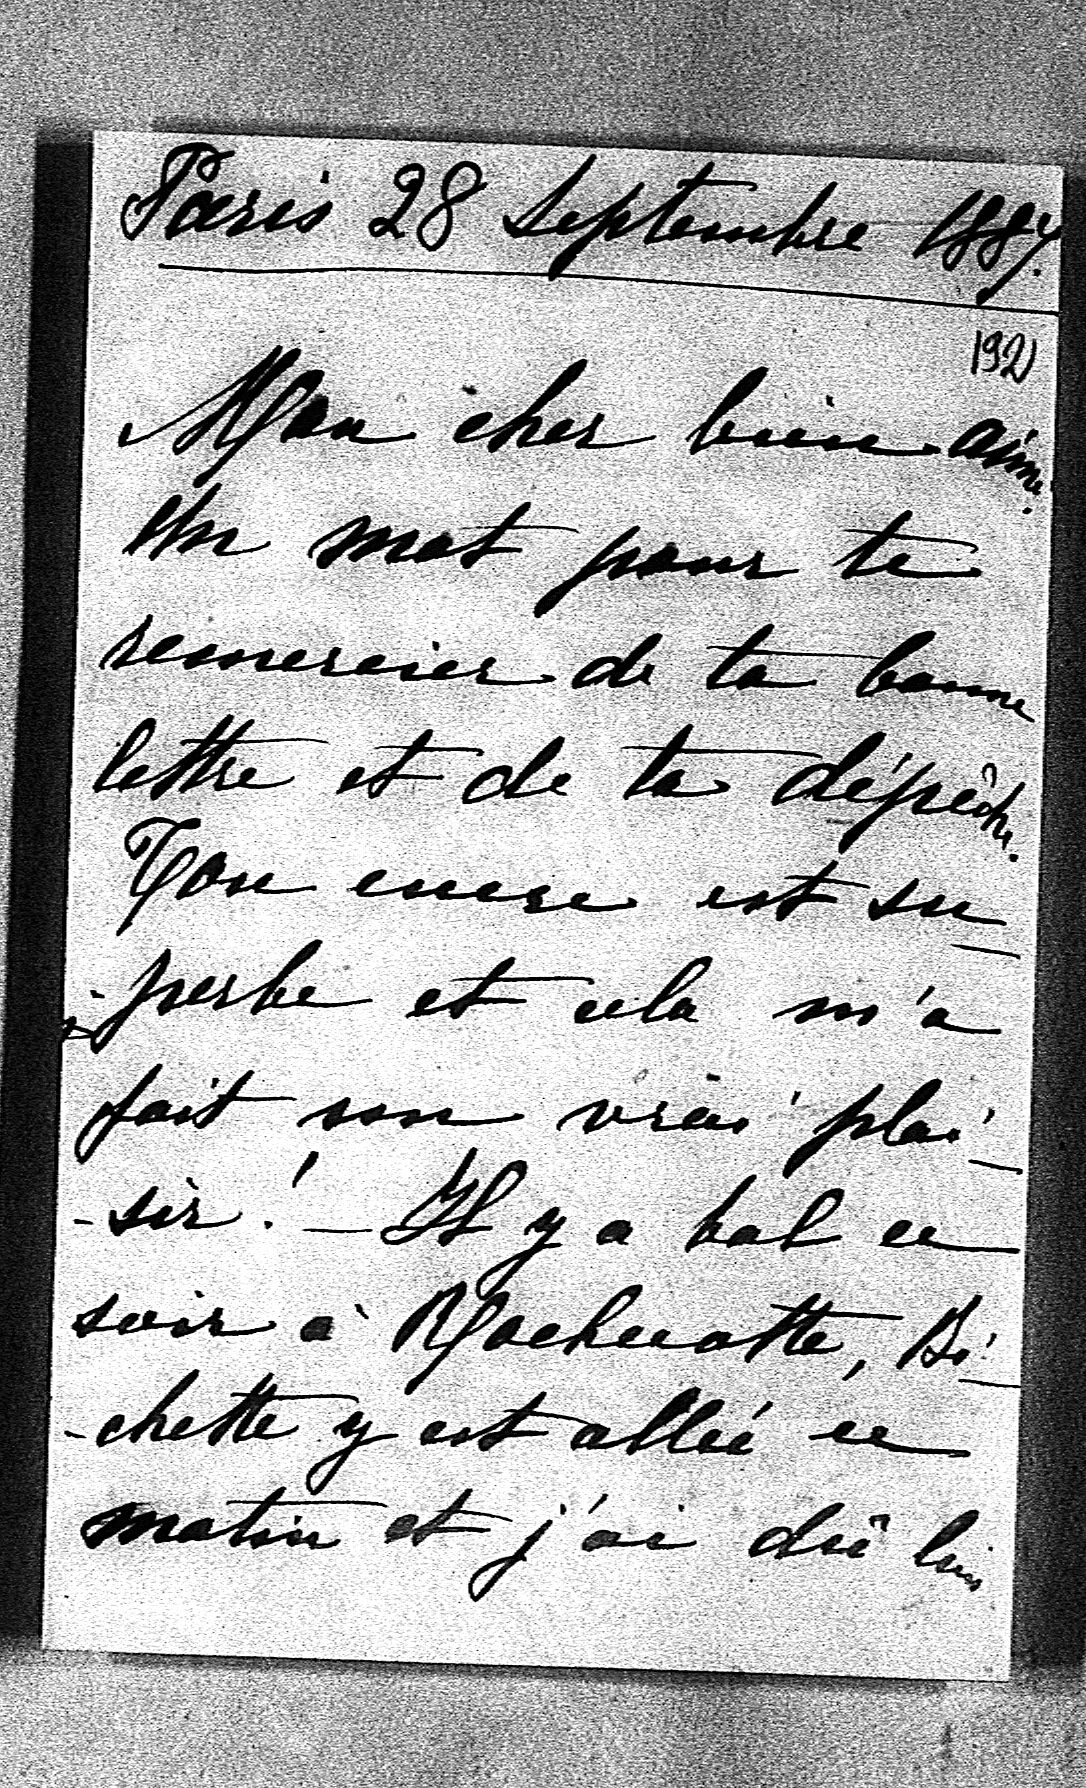 Paris 28 Septembre 1887.
192
Mon cher bien aimé.
Un mot pour te
remercier de ta bonne
lettre et de ta dépêche.
Ton encre est su
-perbe et cela m'a
fait un vrai plai
-sir! — Il y a bal ce
soir à Rochecotte, Bi
-chette y est allée ce
matin et j'ai dû